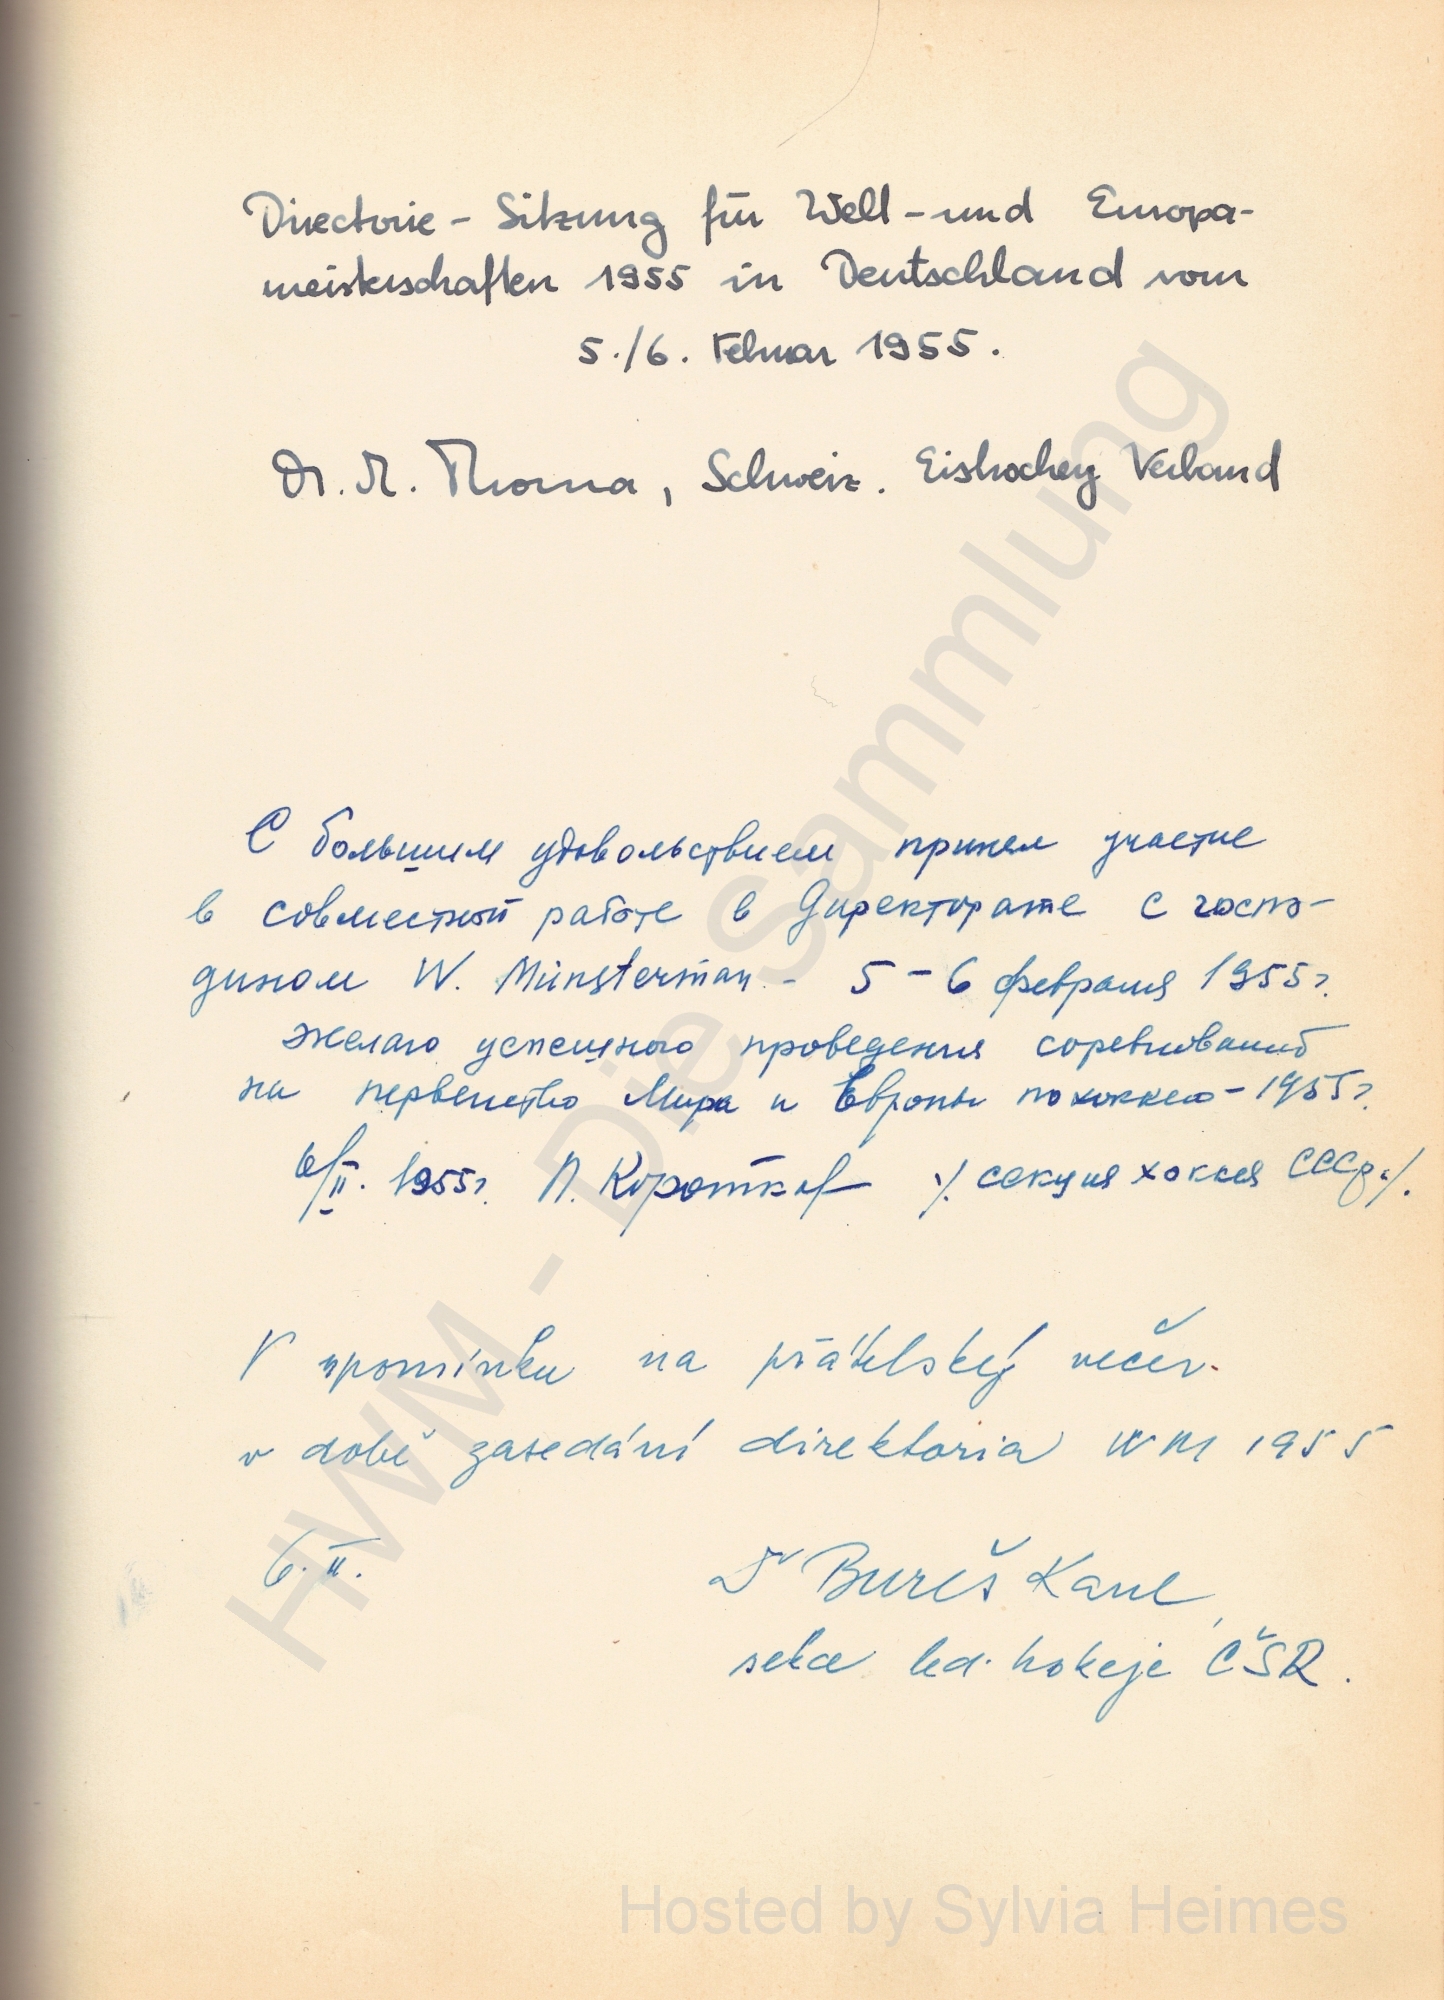 Directorie - Sitzung für Welt - und Europa-
meisterschaften 1955 in Deutschland vom
5./6. Februar 1955.
Dr. M. Thoma, Schweiz. Eishockey Verband
С большим удовольствием принял участие
в совместной работе в Директорате с госпо-
дином W. Münsterman - 5-6 февраля 1955 г.
Желаю успешного проведения соревнований
на первенство Мира и Европы по хоккею - 1955 г.
6/II. 1955 г. П. Коротков ./. секция хоккея СССР ./.
V upomínku na přátelský večer
v době zasedání direktoria WM 1955
6. II.
Dr Bureš Karel,
sekce led. hokeje ČSR.
HWM - Die Sammlung
Hosted by Sylvia Heimes